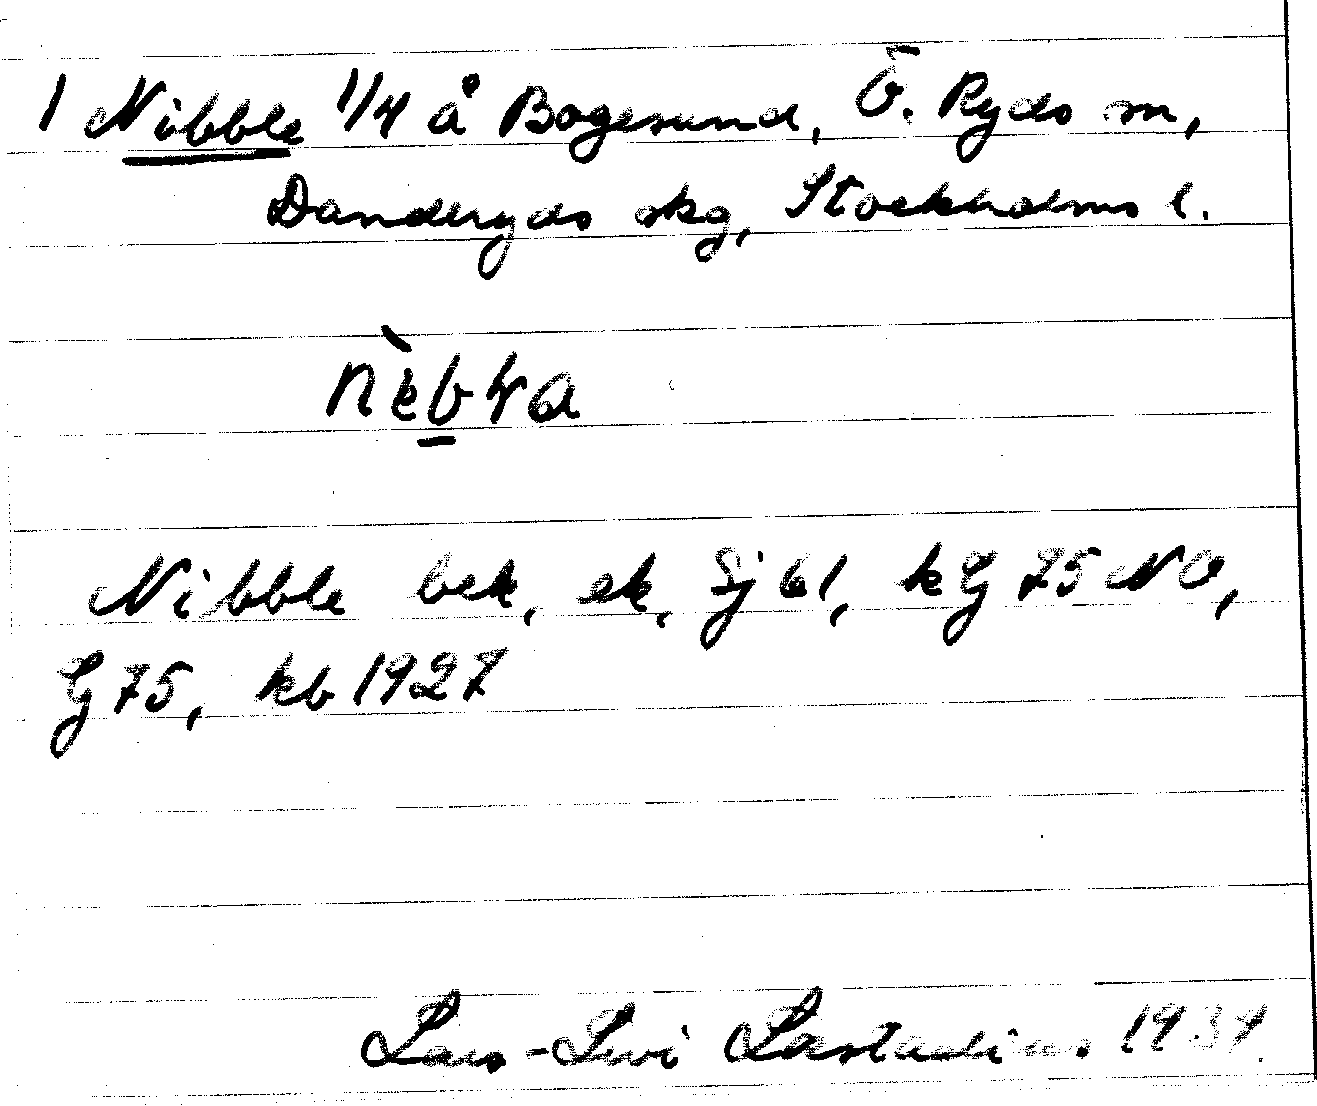 1 Nibble 1/4 å Bogesund, Ö. Ryds sn,
Danderyds skg, Stockholms l.
Nibble bek, ek, Sj 61, kG 75 NO,
G 75, kb 1927
Lars-Levi Læstadius 1934.